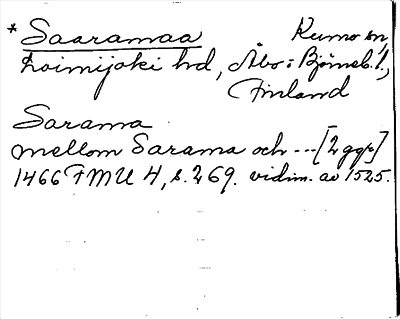 * Saaramaa Kumo sn,
Loimijoki hd, Åbo: Björneb. l.,
Finland
Sarama
mellom Sarama och --- [2 ggr]
1466 FMU 4, s. 269. vidim. av 1525.